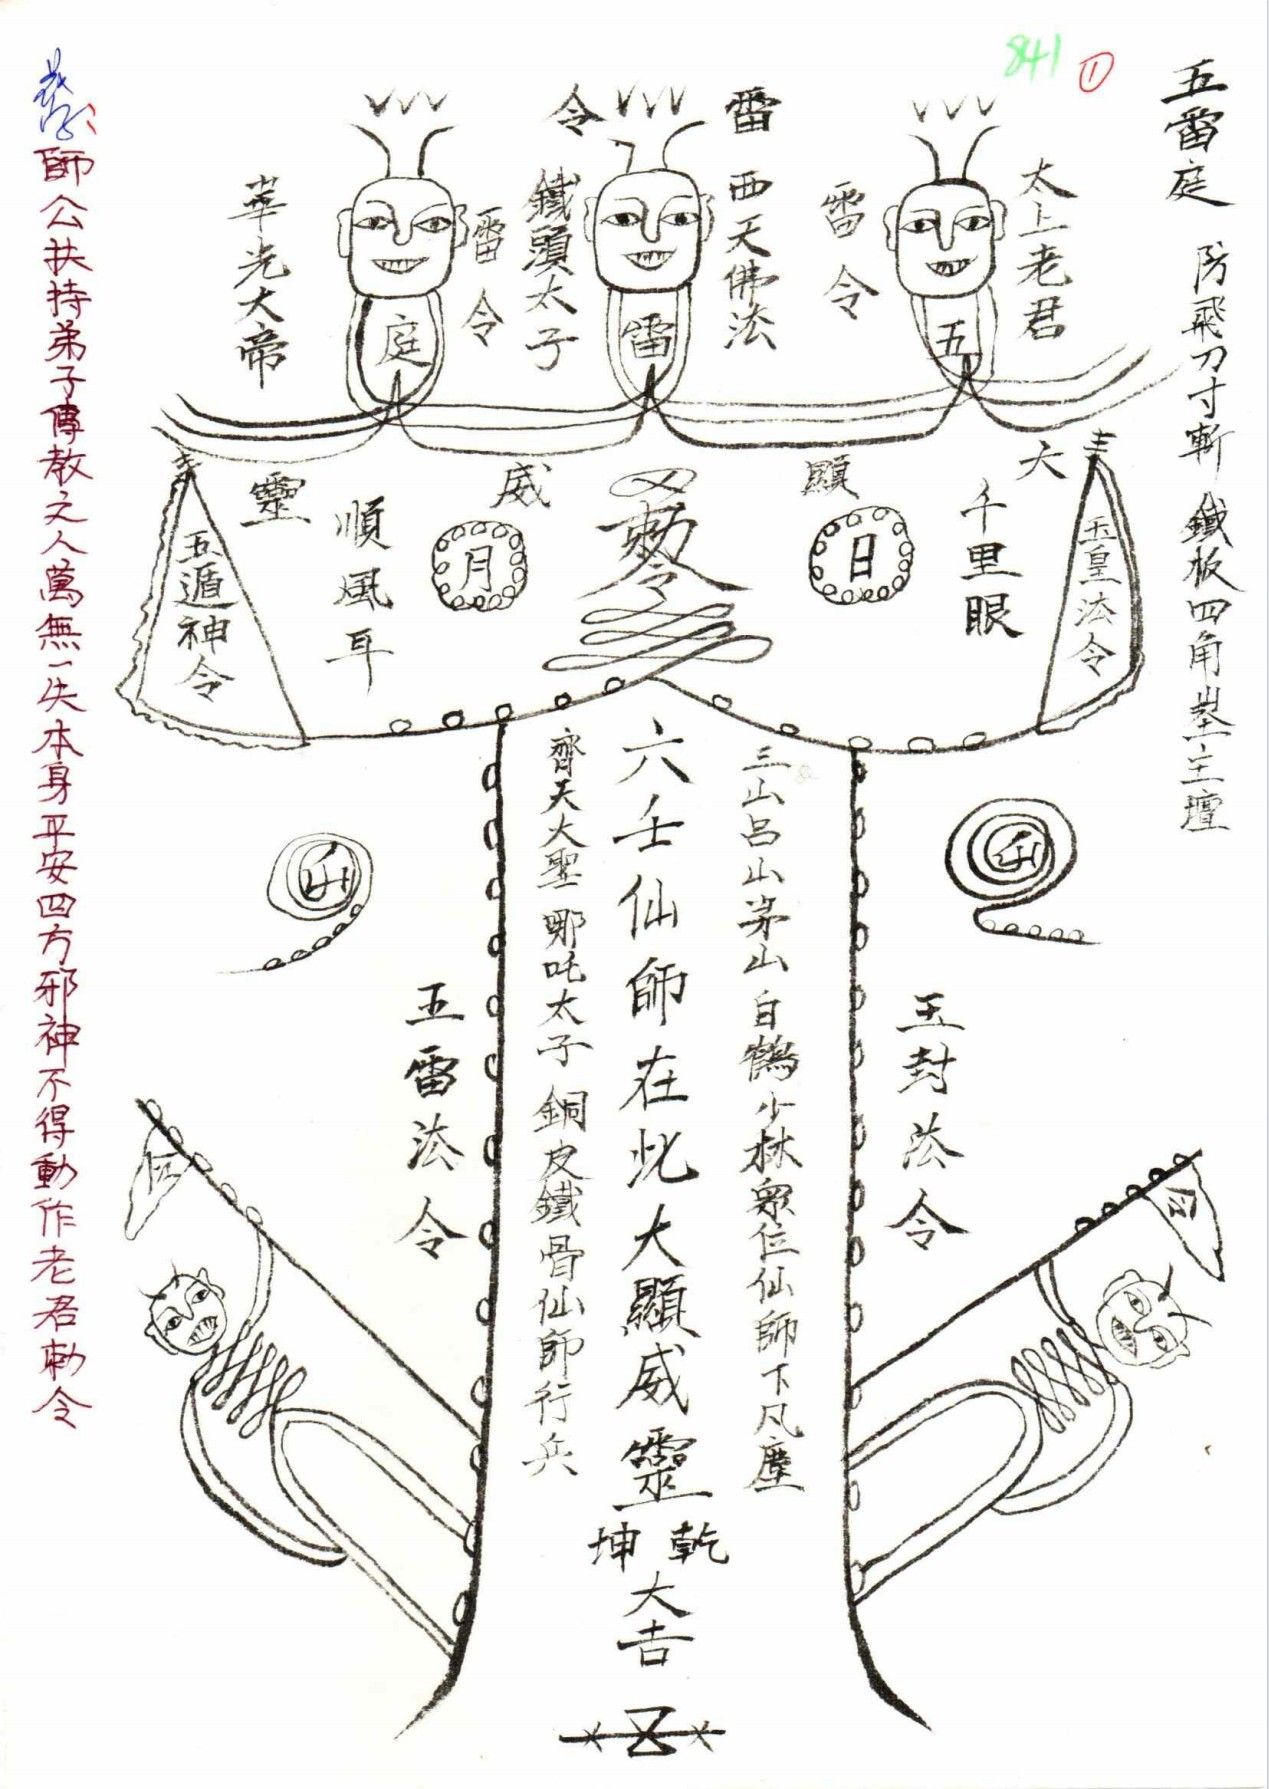 841
①
五雷庭 防飛刀寸斬 鐵板四角 主壇
太上老君
雷令
雷
西天佛法
令
鐵頭太子
雷令
華光大帝
五
雷
庭
大
顯
威
靈
玉皇法令
千里眼
日
勅令
月
順風耳
五遁神令
三山呂山茅山白鶴少林眾位仙師下凡塵
六壬仙師在此大顯威靈
乾坤
大吉
齊天大聖哪吒太子銅皮鐵骨仙師行兵
玉封法令
五雷法令
師公扶持弟子傳教之人萬無一失本身平安四方邪神不得動作老君勅令